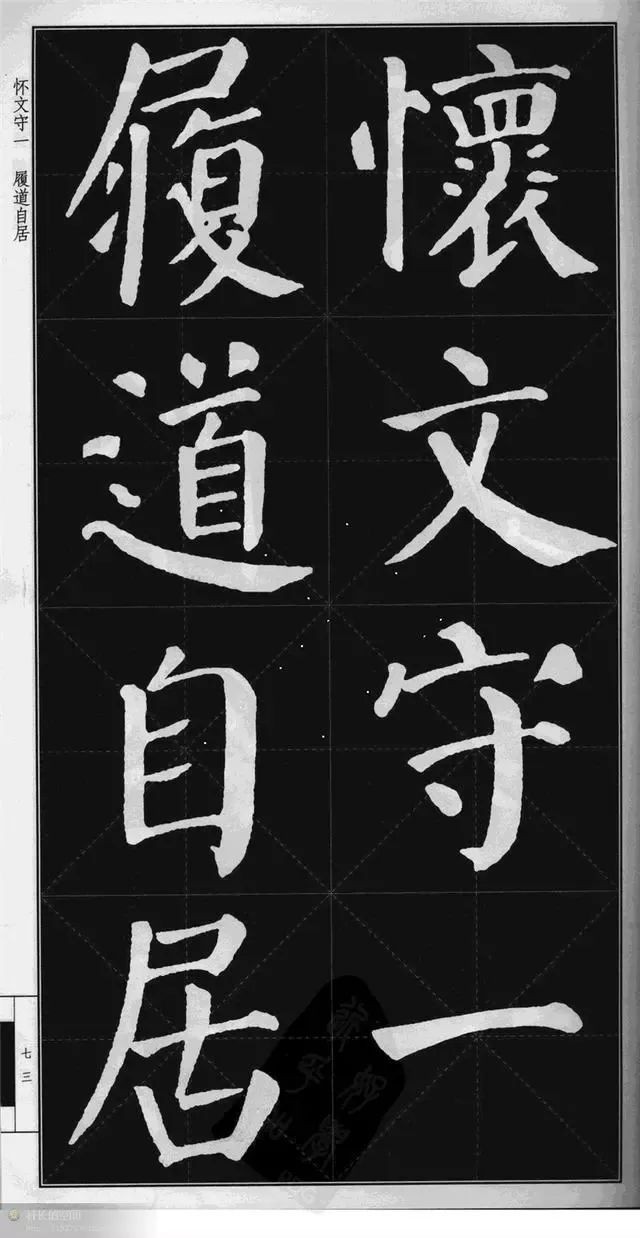 懷文守一
履道自居
怀文守一　履道自居
七三